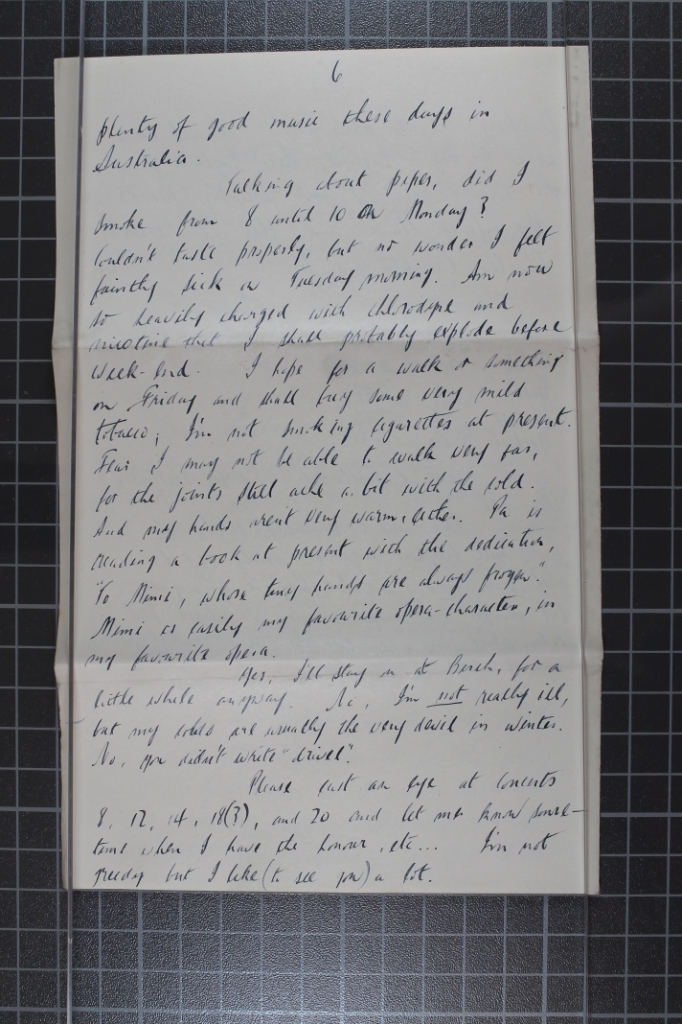 6
plenty of good music these days in
Australia.
Talking about pipes, did I
smoke from 8 until 10 on Monday?
Couldn't taste properly, but no wonder I felt
faintly sick on Tuesday morning. Am now
so heavily charged with chlorodyne and
nicotine that I shall probably explode before
week-end. I hope for a walk or something
on Friday and shall buy some very mild
tobacco; I'm not smoking cigarettes at present.
Fear I may not be able to walk very far,
for the joints still ache a bit with the cold.
And my hands aren't very warm, either. Pa is
reading a book at present with the dedication,
"To Mimi, whose tiny hands are always frozen".
Mimi is easily my favourite opera-character, in
my favourite opera.
Yes, I'll stay in St Bench, for a
little while anyway. No, I'm not really ill,
but my colds are usually the very devil in winter.
No, you didn't write "drivel".
Please cast an eye at concerts
8, 12, 14, 18(?), and 20 and let me know some-
time when I have the honour, etc... I'm not
greedy but I like (to see you) a lot.